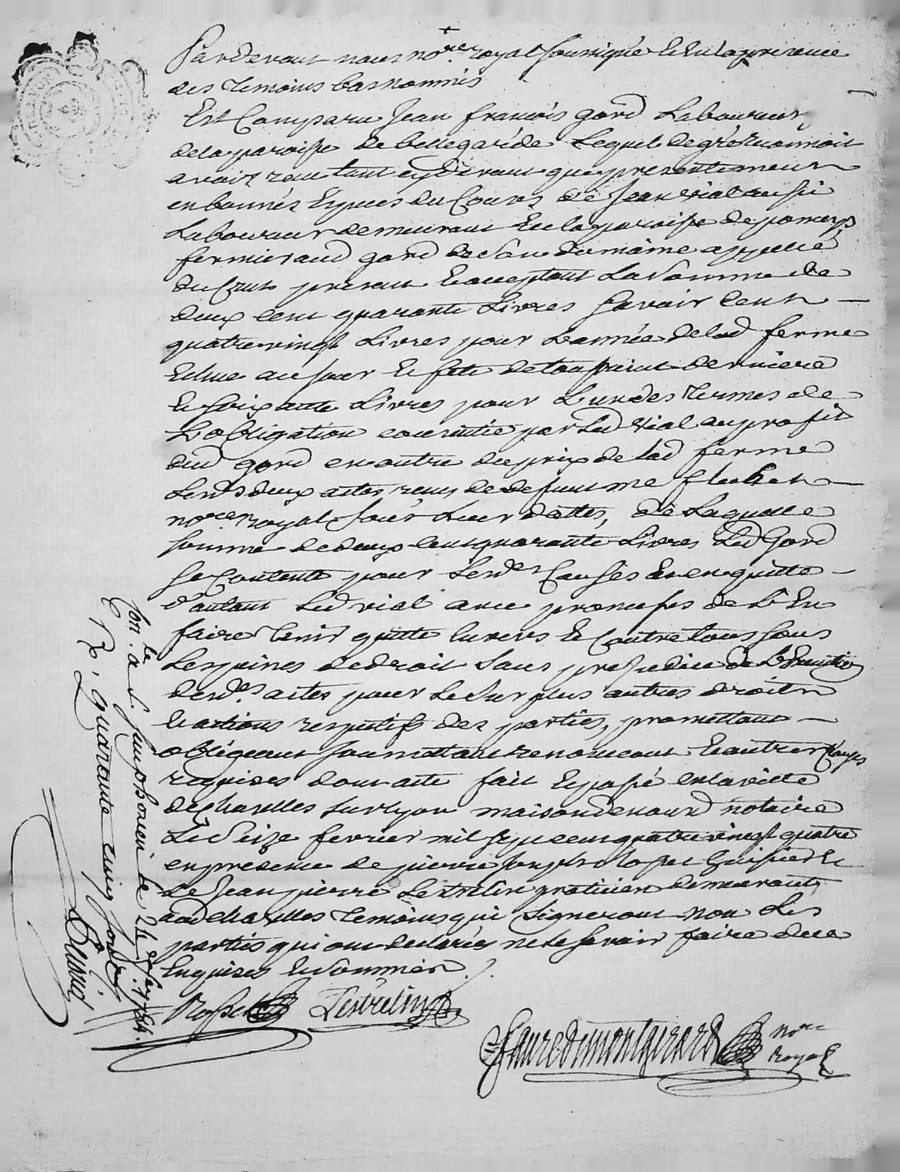 Pardevant nous no.re royal soussigné et en la presence
des temoins bas nommés
Est Comparu Jean francois gord Laboureur
de la paroisse de bellegarde Lequel de gré reconnoit
avoir recu tant cy devant que presentement
en bonnes Espues du Cours de Jean vial aussi
Laboureur demeurant En la paroisse de pomeys
fermier aud gord de son Domaine appellé
du present Et acceptant La somme de
deux cent quarante Livres savoir cent
quatre vingt Livres pour L'année de lad ferme
Echue au jour et fete de toussaint derniere
Et soixante Livres pour L'un des termes de
L'obligation consentie par led vial au profit
dud gord en outre du prix de lad ferme
Lesd.s deux actes recus de defunt me flachat
no.re royal sous Leur dattes, de Laquelle
somme de deux cent quarante Livres Led Gord
se Contente pour lesd.es Causes et en quitte
d'autant Led vial avec promesses de L'En
faire tenir quitte Envers et Contre tous sous
Les peines de droit sans prejudice de L'Execution
desd.s actes pour le surplus autres droits
Et actions respectifs des parties, promettant
obligeant soumettant renoncant Et autres Clauses
requises dont acte fait Et passé en la ville
de Chazelles sur Lyon maison de nousd notaire
Le seize fevrier mil sept cent quatre vingt quatre
en presence de pierre Et
de Jean pierre Lestrelin praticien demeurants
aud chazelles temoins qui signeront non Les
parties qui ont declarées ne le savoir faire de ce
Enquises Et sommées.
Lestrelin
faure de montgirard no.re
royal
Con.lé a S. Simphorien le 24 f. 1784.
R. quarante cinq sous